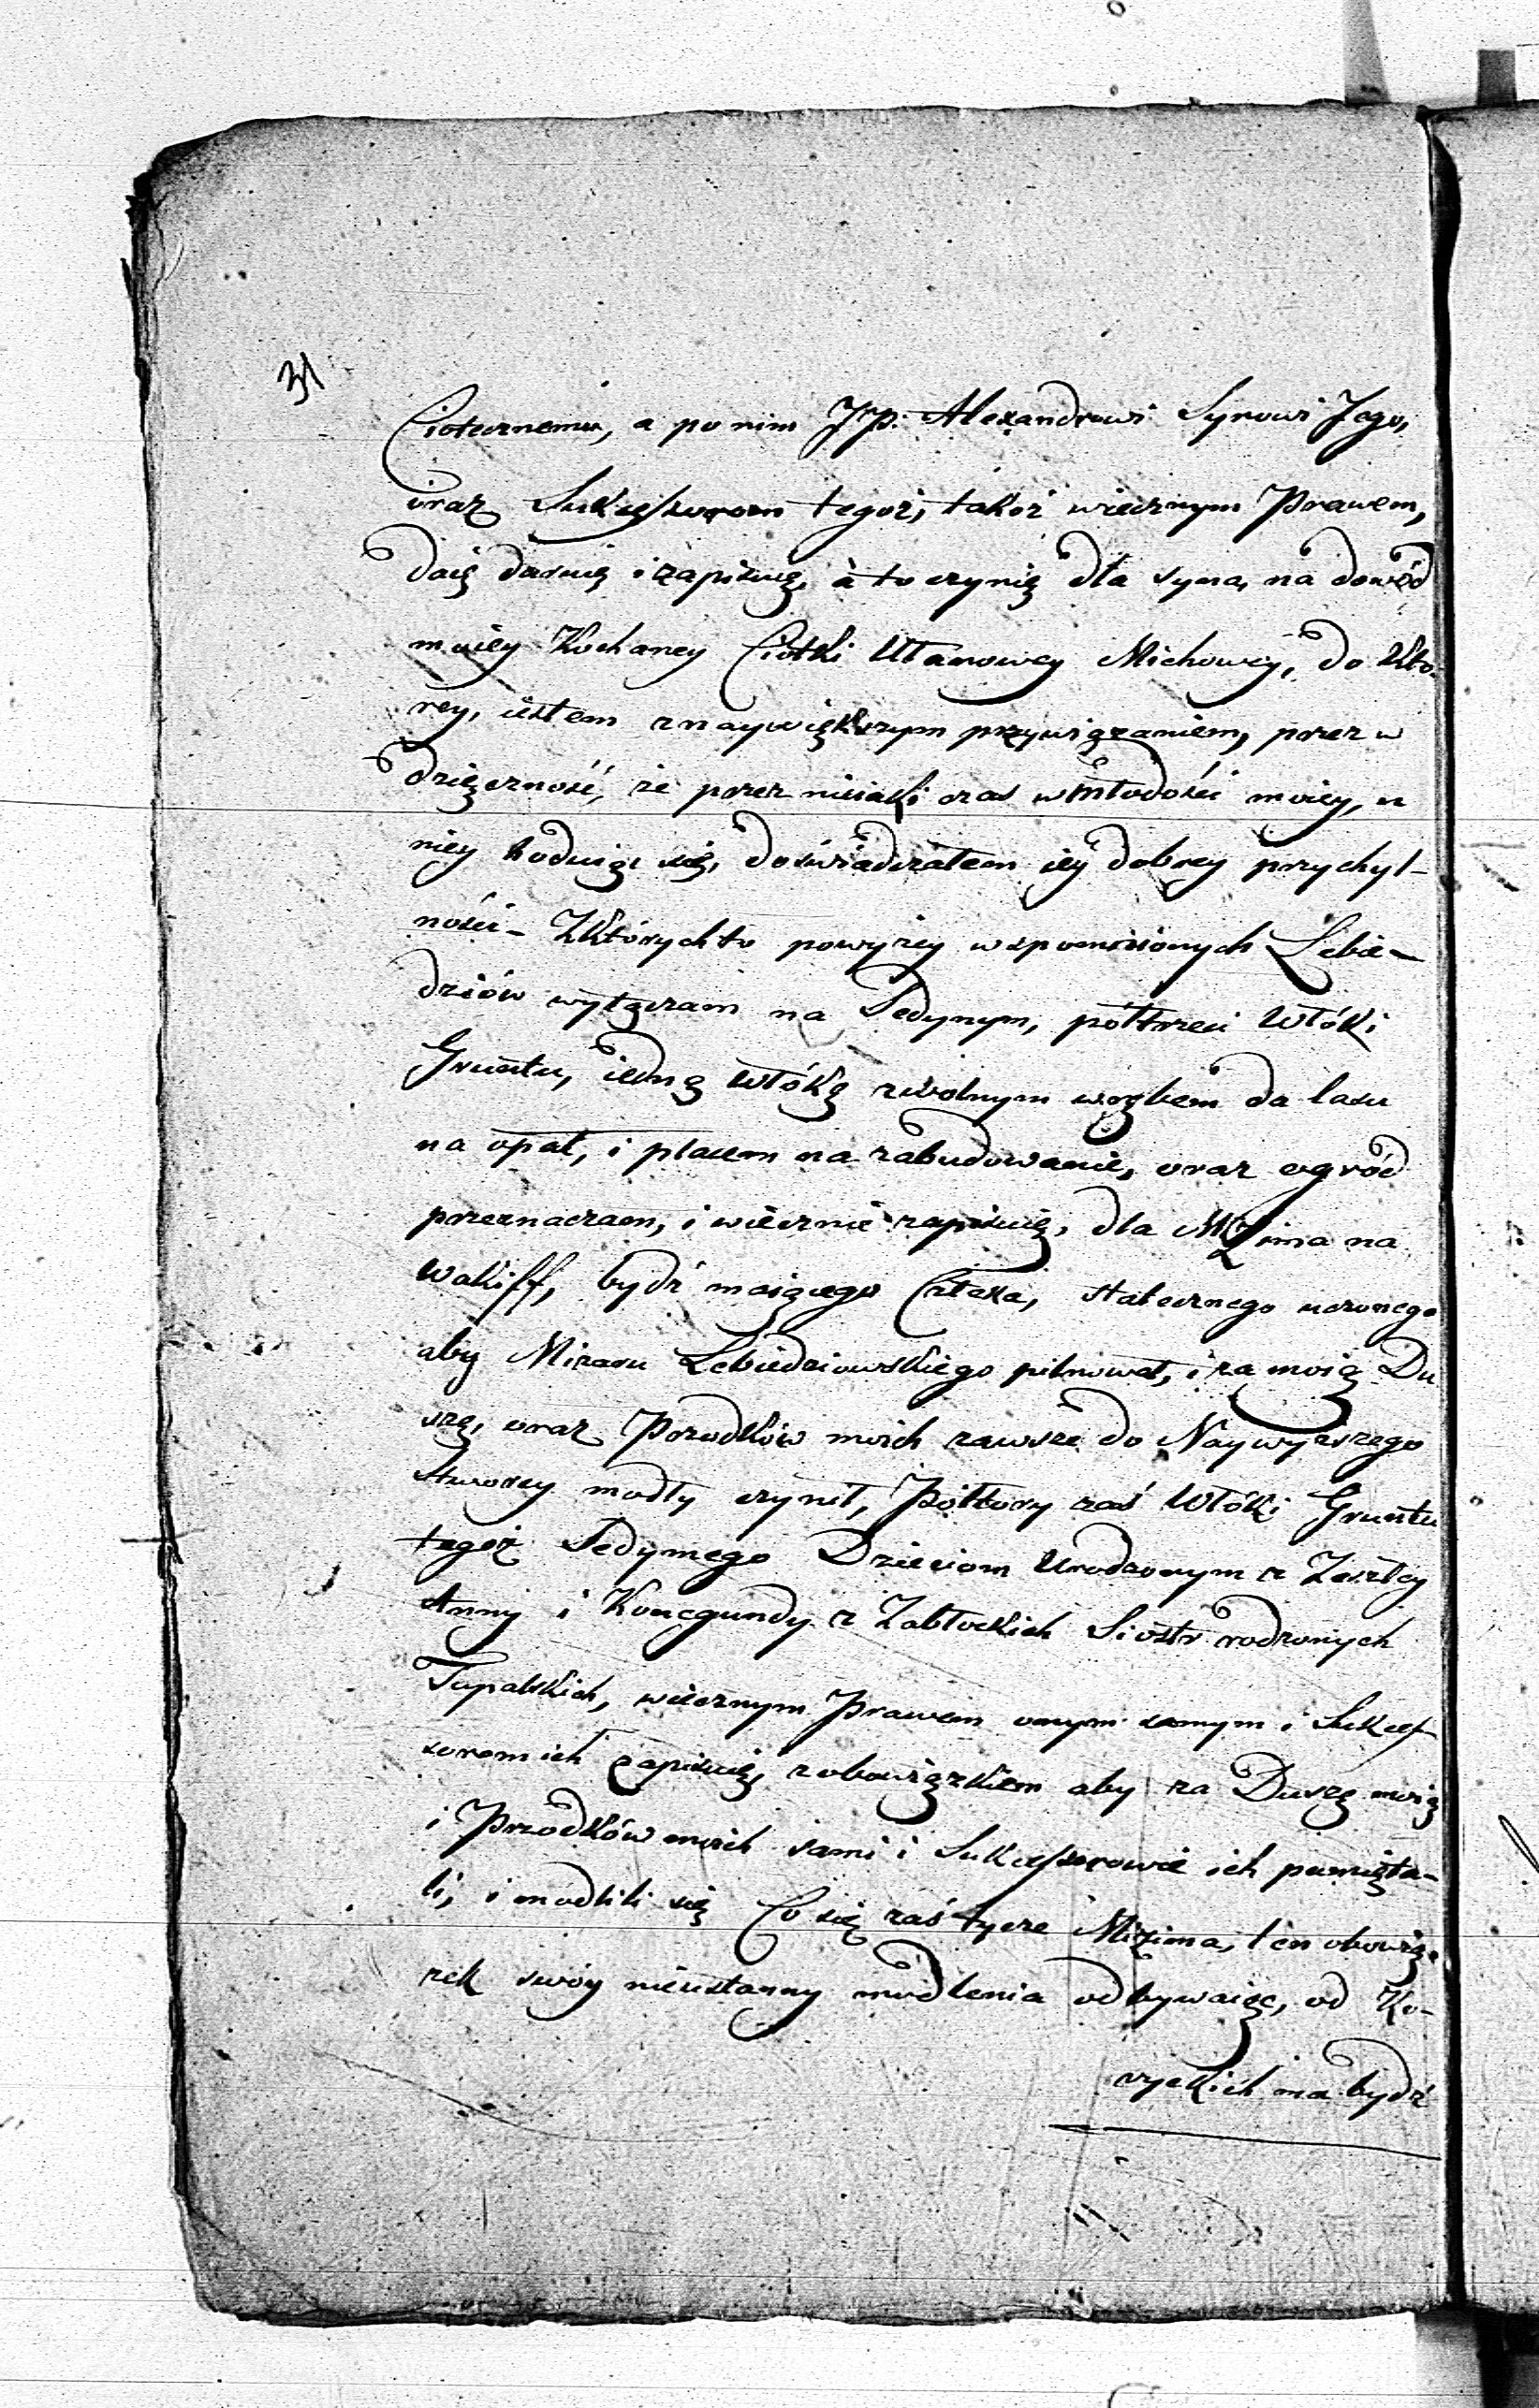 31
Ciotecznemu, a po nim Jp: Alexandrowi Synowi Jego,
oraz Sukcessorom tegoż, takoż wiecznym Prawem,
daię daruię i zapisuię, à to czynię dla syna, na dowód
moiey Kochaney Ciotki Ułanowey Michowey, do Kto-
rey, iestem z naywiększym przywiązaniem, przez w
dzięczność, że przez nieiaki czas w młodości moiey, u
niey hoduiąc się, doświadczałem iey dobrey przychyl-
ności – Z Których to powyżey wspomnionych Lebie-
dziów wyłączam na Sedynym, półtrzeci Włóki
Gruntu, iedną Włókę z wolnym wrębem do lasu
na opał, i placem na zabudowanie, oraz ogród
przeznaczam, i wiecznie zapisuię, dla Mizima na
Wakiff, bydź maiącego Człeka, statecznego uczonego
aby Mizaru Lebiedziowskiego pilnował, i za moią Du
szę, oraz Przodków moich zawsze do Naywyższego
Stworcy modły czynił, Półtory zaś Włóki Gruntu
tegoż Sedymego Dzieciom Urodzonym z Zeszłey
Anny i Konegundy z Zabłockich Siostr rodzonych
Tupalskich, wiecznym Prawem onym samym i Sukces
sorom ich zapisuię, z obowiązkiem aby za Duszę moią
i Przodków moich sami i Sukcessorowie ich pamięta-
li, i modlili się Co się zaś tycze Mizima, ten obowią-
zek swóy nieustanny modlenia odbywaiąc, od Ko-
rzyckich ma bydź